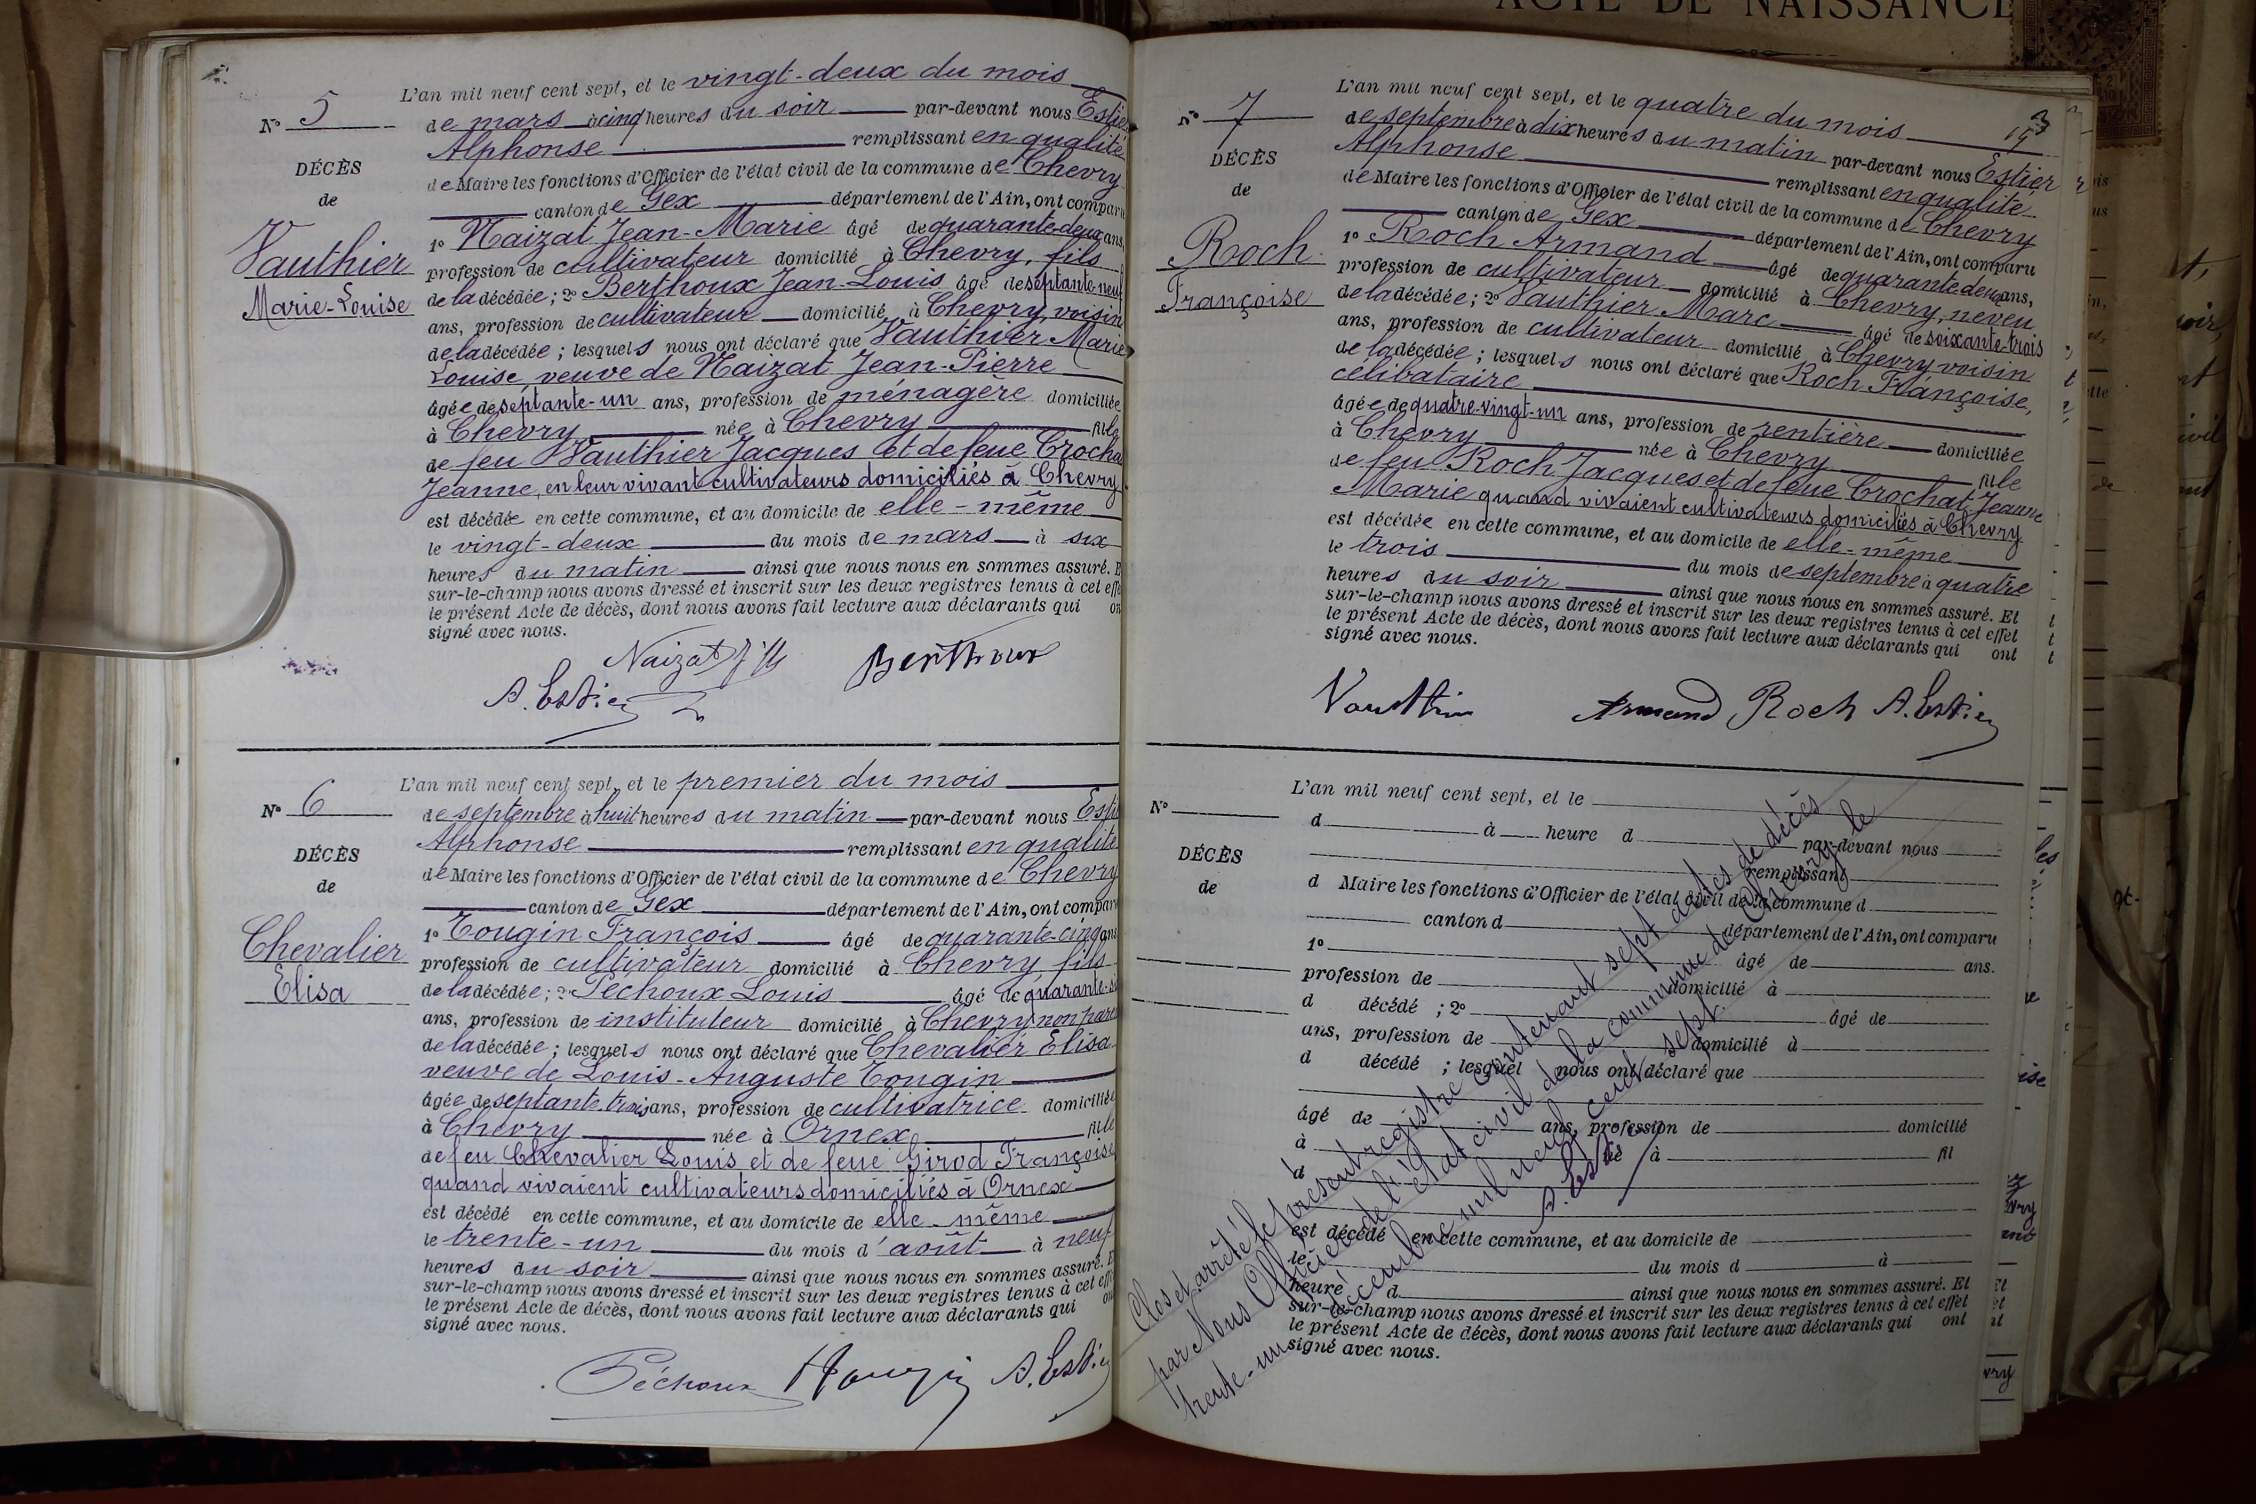 ACTE DE NAISSANCE
L'an mil neuf cent sept, et le vingt-deux du mois
N° 5
de mars à cinq heures du soir par-devant nous Estier
Alphonse remplissant en qualité
DÉCÈS
de Maire les fonctions d'Officier de l'état civil de la commune de Chevry
de
canton de Gex département de l'Ain, ont comparu
Vauthier
Marie-Louise
1° Naizat Jean-Marie âgé de quarante-deux ans,
profession de cultivateur domicilié à Chevry, fils
de la décédée; 2° Berthoux Jean-Louis âgé de septante-neuf
ans, profession de cultivateur domicilié à Chevry, voisin
de la décédée; lesquels nous ont déclaré que Vauthier Marie
Louise, veuve de Naizat Jean-Pierre
âgée de septante-un ans, profession de ménagère domiciliée
à Chevry née à Chevry fille
de feu Vauthier Jacques et de feue Crocha
Jeanne, en leur vivant cultivateurs domiciliés à Chevry
est décédée en cette commune, et au domicile de elle-même
le vingt-deux du mois de mars à six
heures du matin ainsi que nous nous en sommes assuré. E
sur-le-champ nous avons dressé et inscrit sur les deux registres tenus à cet effe
le présent Acte de décès, dont nous avons fait lecture aux déclarants qui on
signé avec nous.
Naizat fils Berthoux
A. Estier
L'an mil neuf cent sept, et le premier du mois
N° 6
de septembre à huit heures du matin par-devant nous Estie
Alphonse remplissant en qualité
DÉCÈS
de Maire les fonctions d'Officier de l'état civil de la commune de Chevry
de
canton de Gex département de l'Ain, ont comparu
Chevalier
Elisa
1° Tougin François âgé de quarante-cinq ans
profession de cultivateur domicilié à Chevry, fils
de la décédée; 2° Péchoux Louis âgé de quarante-si
ans, profession de instituteur domicilié à Chevry, non paren
de la décédée; lesquels nous ont déclaré que Chevalier Elisa
veuve de Louis-Auguste Tougin
âgée de septante-trois ans, profession de cultivatrice domiciliée
à Chevry née à Ornex fille
de feu Chevalier Louis et de feue Girod Françoise
quand vivaient cultivateurs domiciliés à Ornex
est décédé en cette commune, et au domicile de elle-même
le trente-un du mois d'août à neuf
heures du soir ainsi que nous nous en sommes assuré. E
sur-le-champ nous avons dressé et inscrit sur les deux registres tenus à cet effe
le présent Acte de décès, dont nous avons fait lecture aux déclarants qui on
signé avec nous.
Péchoux Tougin A. Estier
L'an mil neuf cent sept, et le quatre du mois
N° 7
de septembre à dix heures du matin par-devant nous Estier
Alphonse remplissant en qualité
DÉCÈS
de Maire les fonctions d'Officier de l'état civil de la commune de Chevry
de
canton de Gex département de l'Ain, ont comparu
Roch
Françoise
1° Roch Armand âgé de quarante-deux ans,
profession de cultivateur domicilié à Chevry, neveu
de la décédée; 2° Vauthier Marc âgé de soixante-trois
ans, profession de cultivateur domicilié à Chevry voisin
de la décédée; lesquels nous ont déclaré que Roch Françoise,
célibataire
âgée de quatre-vingt-un ans, profession de rentière domiciliée
à Chevry née à Chevry fille
de feu Roch Jacques et de feue Crochat Jeanne
Marie quand vivaient cultivateurs domiciliés à Chevry
est décédée en cette commune, et au domicile de elle-même
le trois du mois de septembre à quatre
heures du soir ainsi que nous nous en sommes assuré. Et
sur-le-champ nous avons dressé et inscrit sur les deux registres tenus à cet effet
le présent Acte de décès, dont nous avons fait lecture aux déclarants qui ont
signé avec nous.
Vauthier Armand Roch A. Estier
L'an mil neuf cent sept, et le
N°
d à heure d par-devant nous
remplissant
DÉCÈS
d Maire les fonctions d'Officier de l'état civil de la commune d
de
canton d département de l'Ain, ont comparu
1° âgé de ans.
profession de domicilié à
d décédé ; 2° âgé de
ans, profession de domicilié à
d décédé ; lesquel nous ont déclaré que
âgé de ans, profession de domicilié
à né à fil
d
est décédé en cette commune, et au domicile de
le du mois d à
heure d ainsi que nous nous en sommes assuré. Et
sur-le-champ nous avons dressé et inscrit sur les deux registres tenus à cet effet
le présent Acte de décès, dont nous avons fait lecture aux déclarants qui ont
signé avec nous.
Clos et arrêté le présent registre contenant sept actes de décès
par Nous Officier de l'état civil de la commune de Chevry le
trente-un décembre mil neuf cent sept.
A. Estier